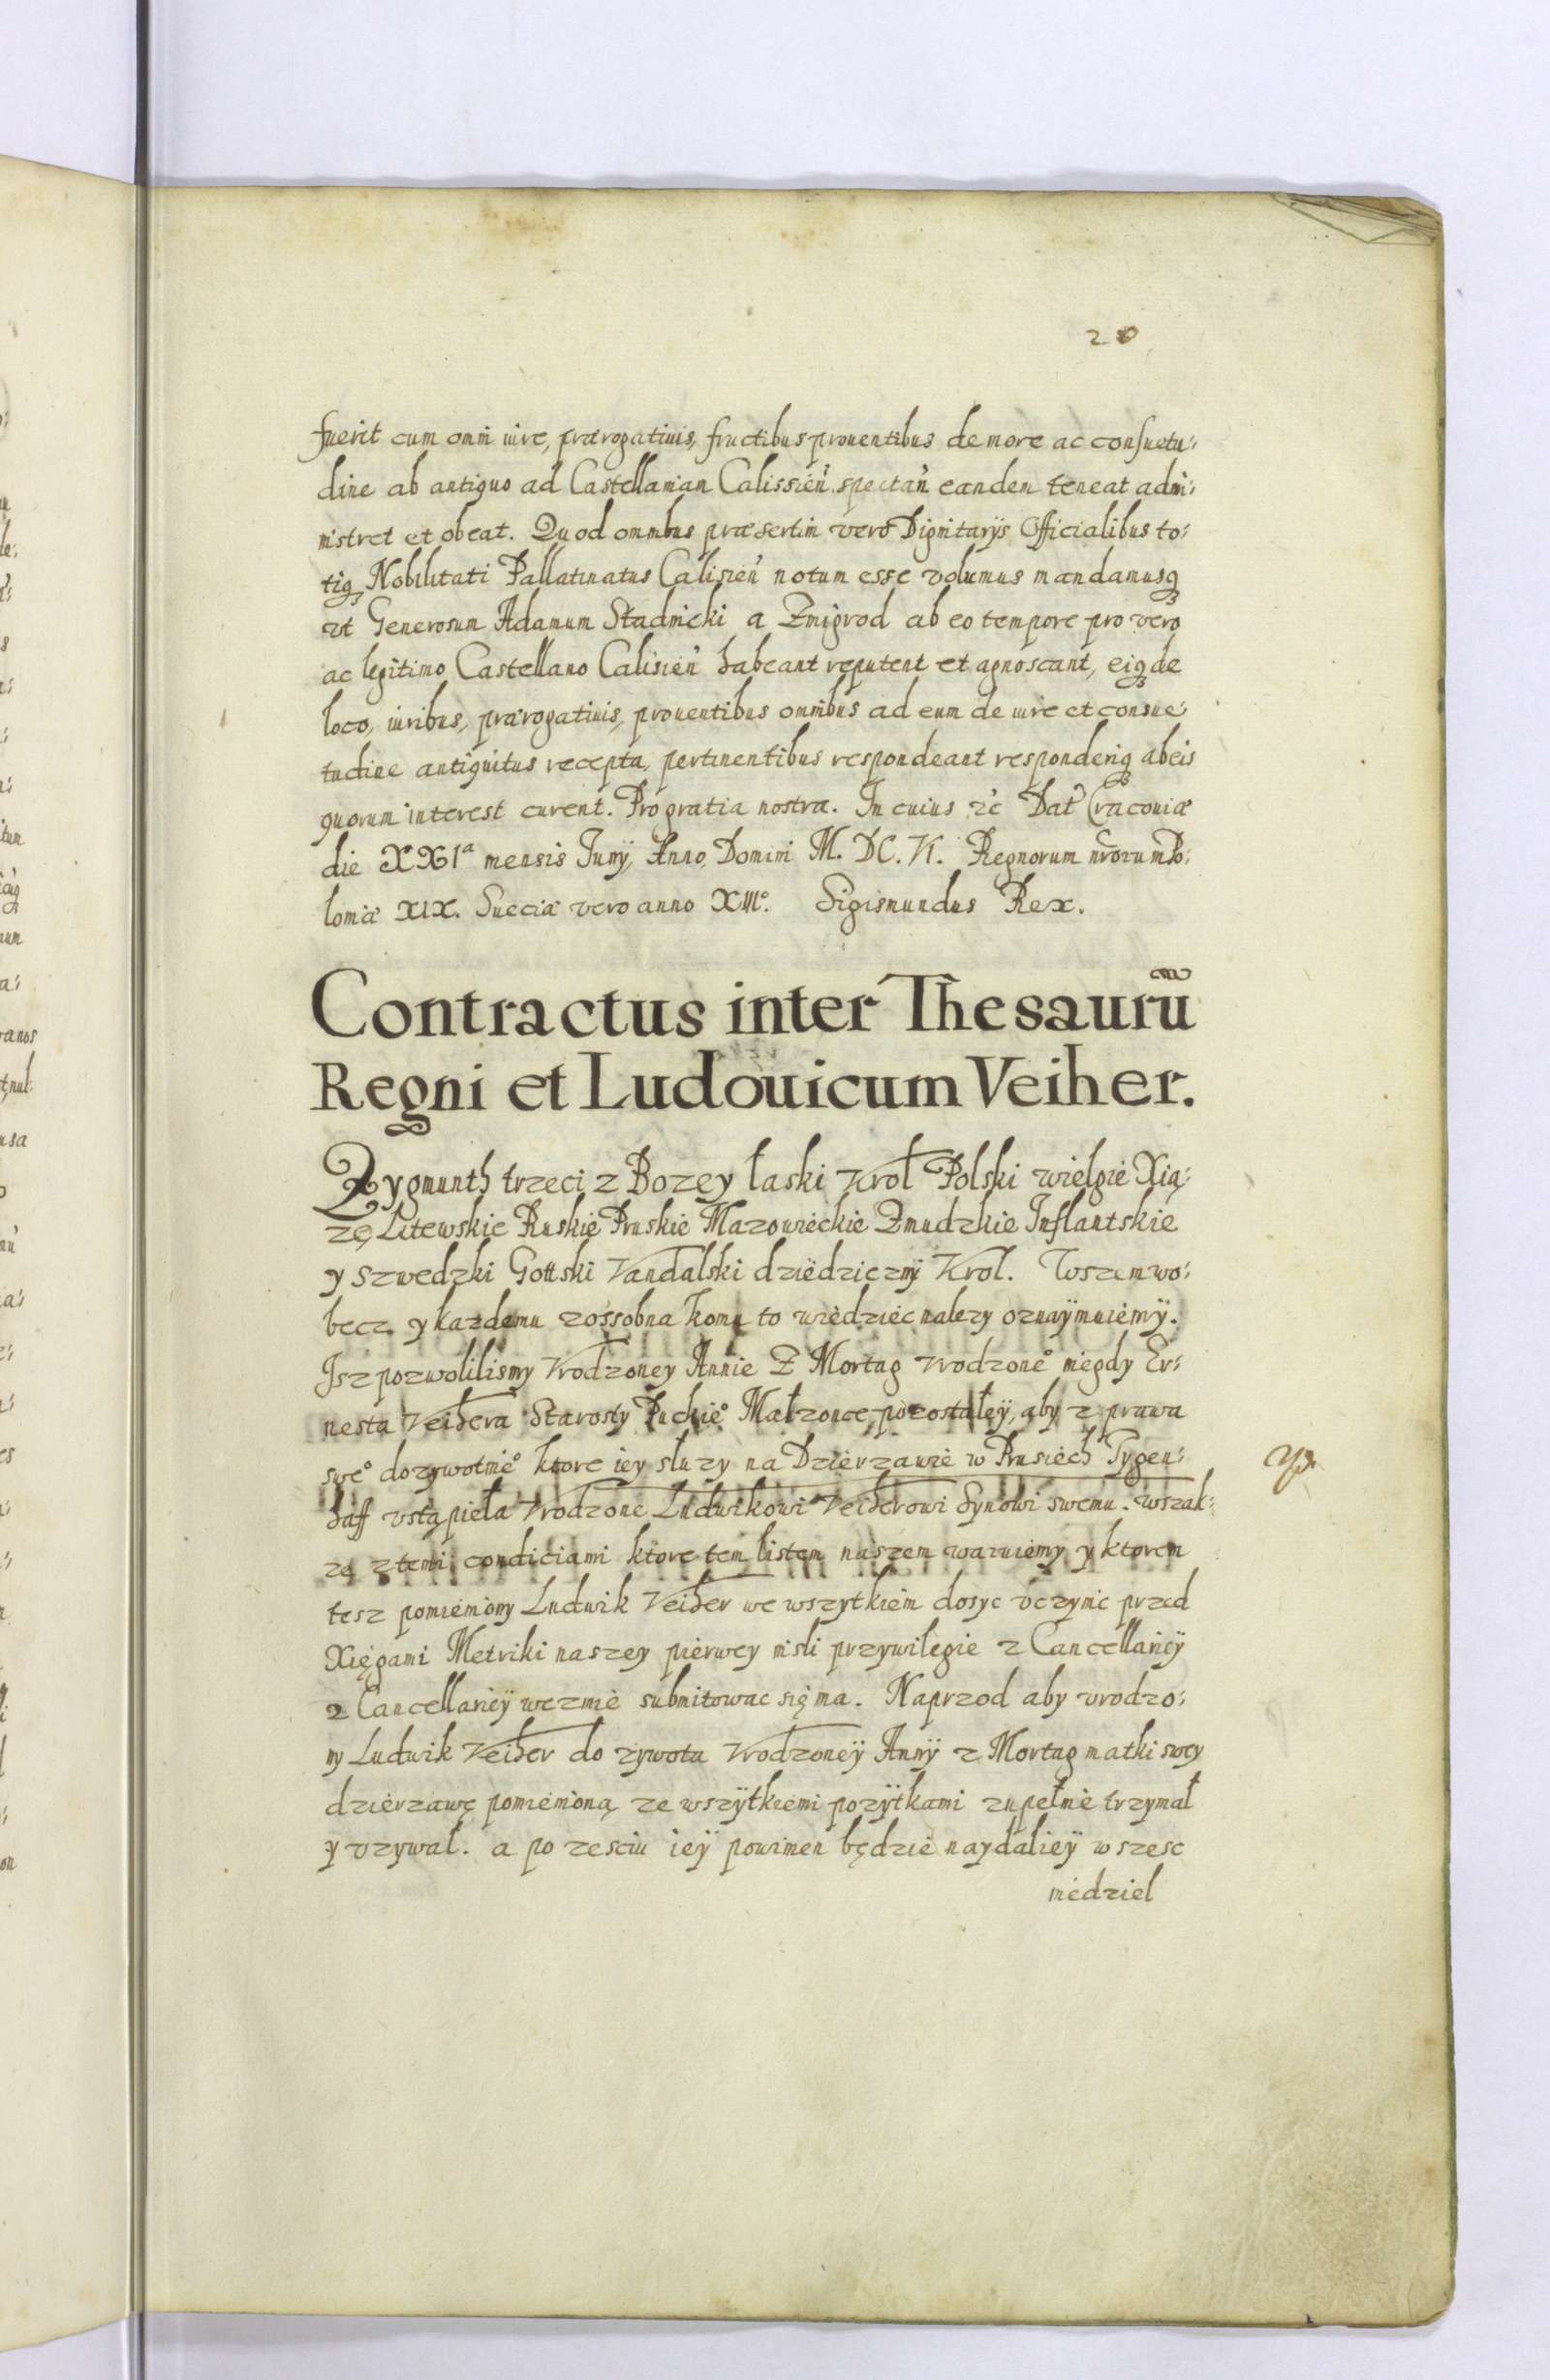 20
fuerit cum omni iure, prærogatiuis, fructibus prouentibus de more ac consuetu:
dine ab antiquo ad Castellaniam Calissien̄ spectan̄ eandem teneat admi:
nistret et obeat. Quod omnibus præsertim vero Dignitarijs Officialibus to:
tiqꝫ Nobilitati Pallatinatus Calisien̄ notum esse volumus mandamusqꝫ
vt Generosum Adamum Stadnicki a Zmigrod ab eo tempore pro vero
ac legitimo Castellano Calisien̄ habeant reputent et agnoscant, eiqꝫ de
loco, iuribus, prærogatiuis, prouentibus omnibus ad eum de iure et consue:
tudine antiquitus recepta, pertinentibus respondeant responderiqꝫ ab eis
quorum interest curent. Pro gratia nostra. In cuius rc̄ Dat̄ Cracouiæ
die XXIᵃ mensis Junÿ, Anno Domini M. DC. VI. Regnorum nr̄orum Po:
loniæ XIX. Sueciæ vero anno XIII°. Sigismundus Rex.
Contractus inter Thesaurū
Regni et Ludouicum Veiher.
Zygmunth trzeci z Bozey łaski Krol Polski wielgie Xią:
zę Litewskie Ruskie Pruskie Mazowieckie Zmudzkie Inflantskie
y Szwedzki Gottski Vandalski dziedziczny Krol. Wszem wo:
becz y kazdemu zossobna komu to wiedziec nalezy oznaÿmuiemÿ.
Jsz pozwolilismy Vrodzoney Annie Z Mortag Vrodzone° niegdy Er:
nesta Veihera Starosty Puckie° Małzonce pozostałeÿ, aby z prawa
swe° dozywotnie° ktore iey słuzy na Dzierzawie w Prusiech Tygen:
haff vstąpieła Vrodzone Ludwikowi Veiherowi Synowi swemu. wszak:
ze z temi condiciami ktore tem listem naszem waruiemy y ktorem
tesz pomieniony Ludwik Veiher we wszytkiem dosyc vczynic przed
Xięgami Metriki naszey pierwey nisli przywilegie z Cancellarieÿ
z Cancellarieÿ wezmie submitowac się ma. Naprzod aby vrodzo:
ny Ludwik Veiher do zywota Vrodzoneÿ Annÿ z Mortag matki swey
dzierzawę pomienioną ze wszÿtkiemi pozÿtkami zupełnie trzymał
y vzywał. a po zesciu ieÿ powinien będzie naydalieÿ w szesc
niedziel